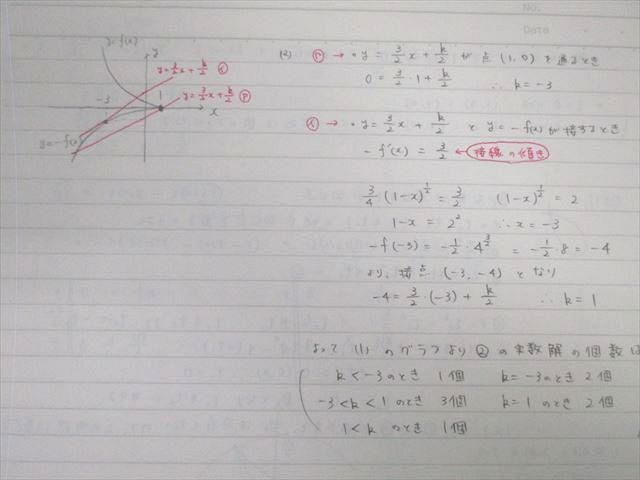 No.
Date
y=f(x)
y
y=3/2x+k/2 ㋑
y=3/2x+k/2 ㋐
-3
1
x
y=-f(x)
(2) ㋐ → • y=3/2x+k/2 が 点(1,0)を通るとき
0=3/2・1+k/2 ∴ k=-3
㋑ → • y=3/2x+k/2 と y=-f(x)が接するとき
-f'(x)=3/2 ← 接線の傾き
3/4(1-x)^{1/2}=3/2 (1-x)^{1/2}=2
1-x=2² ∴ x=-3
-f(-3)=-1/2・4^{3/2}=-1/2・8=-4
より、接点(-3,-4)となり
-4=3/2・(-3)+k/2 ∴ k=1
よって (1)のグラフより②の実数解の個数は
k<-3のとき 1個 k=-3のとき 2個
-3<k<1のとき 3個 k=1のとき 2個
1<kのとき 1個